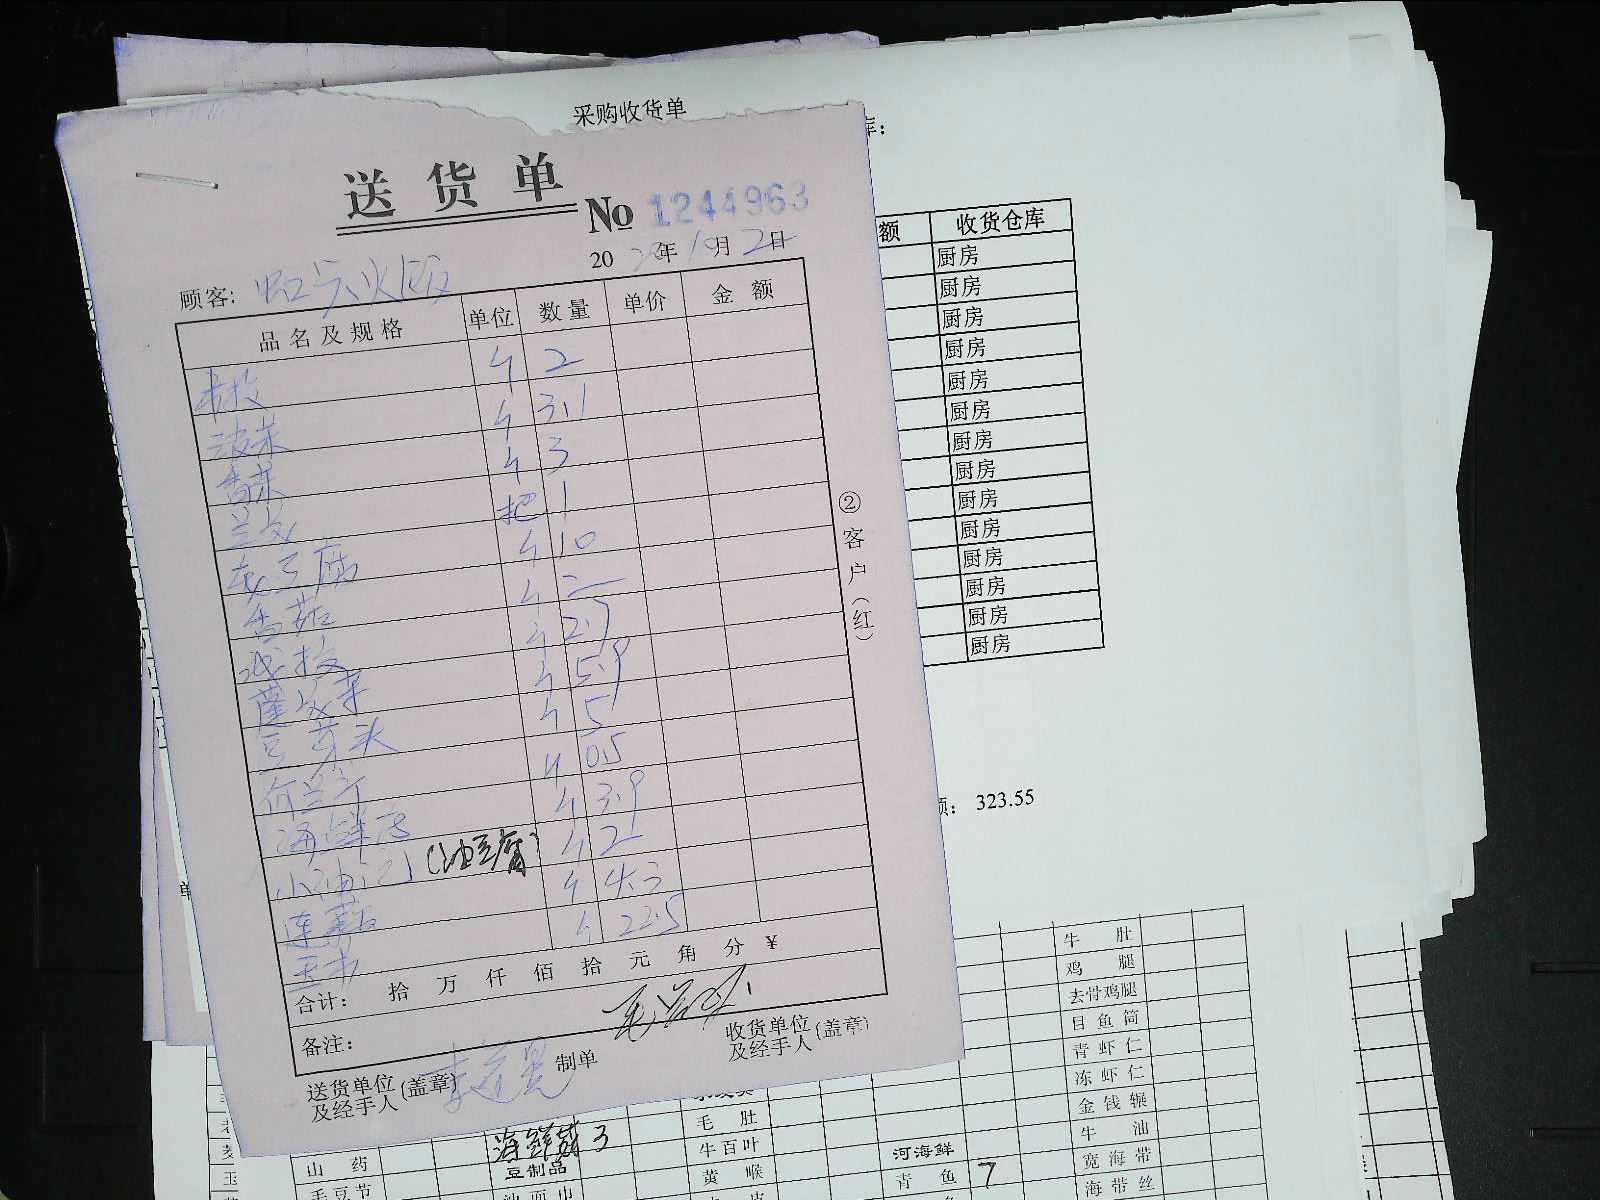 采购收货单
库：
送货单
No 1244963
20 20年10月2日
顾客：
品名及规格 单位 数量 单价 金额
斤 2
菠菜 斤 3.1
香菜 斤 3
把 1
豆腐 斤 10
香菇 斤 2
斤 2.7
蓬蒿菜 斤 5.9
豆芽头 斤 5
荷兰芹 斤 0.5
海鲜菇 斤 3.9
小油 (油豆腐) 斤 2
莲藕 斤 4.3
玉米 斤 22.5
合计： 拾 万 仟 佰 拾 元 角 分 ￥
备注：
送货单位(盖章)
及经手人
制单
收货单位(盖章)
及经手人
②客户(红)
额 收货仓库
厨房
厨房
厨房
厨房
厨房
厨房
厨房
厨房
厨房
厨房
厨房
厨房
厨房
厨房
额： 323.55
单
牛肚
鸡腿
去骨鸡腿
目鱼筒
青虾仁
冻虾仁
毛肚 金钱辗
海鲜菇 3 牛百叶 河海鲜 牛油
山药 豆制品 黄喉 青鱼 7 宽海带
毛豆节 油面巾 海带丝
玉